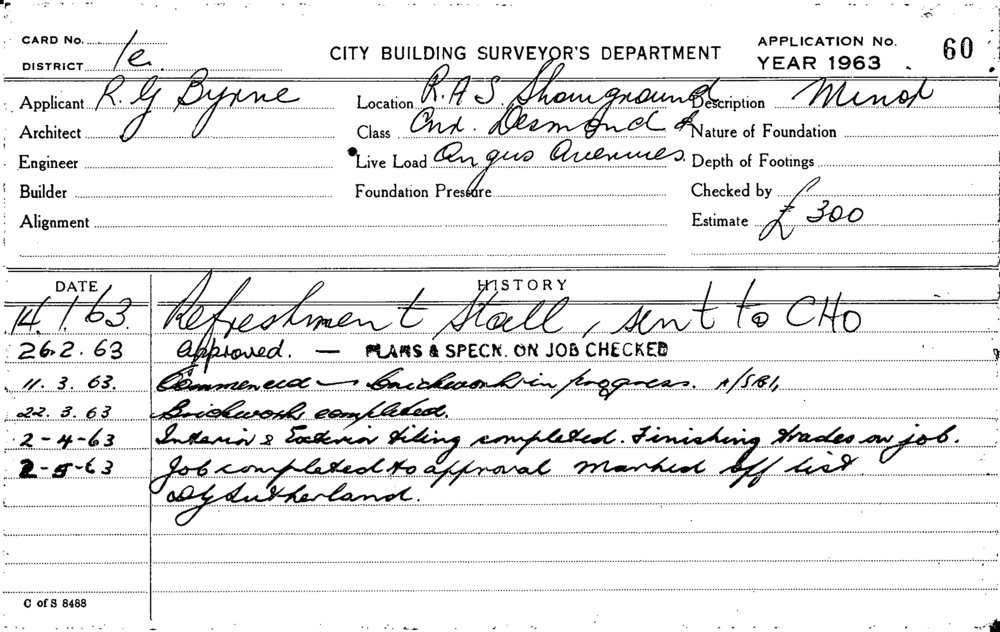 CARD No.
DISTRICT 1e
CITY BUILDING SURVEYOR'S DEPARTMENT
APPLICATION No. 60
YEAR 1963
Applicant R. G Byrne
Location R.A.S. Showground
Description Minor
Architect
Class Cnr. Desmond &
Nature of Foundation
Engineer
Live Load Angus Avenues.
Depth of Footings
Builder
Foundation Pressure
Checked by
Alignment
Estimate £300
DATE HISTORY
14.1.63. Refreshment Stall, sent to CHO
26.2.63 Approved. — PLANS & SPECN. ON JOB CHECKED
11.3.63. Commenced — brickwork in progress.
22.3.63 Brickwork completed.
2-4-63 Interior & Exterior tiling completed. Finishing trades on job.
2-5-63 Job completed to approval marked off list
Sutherland.
C of S 8488